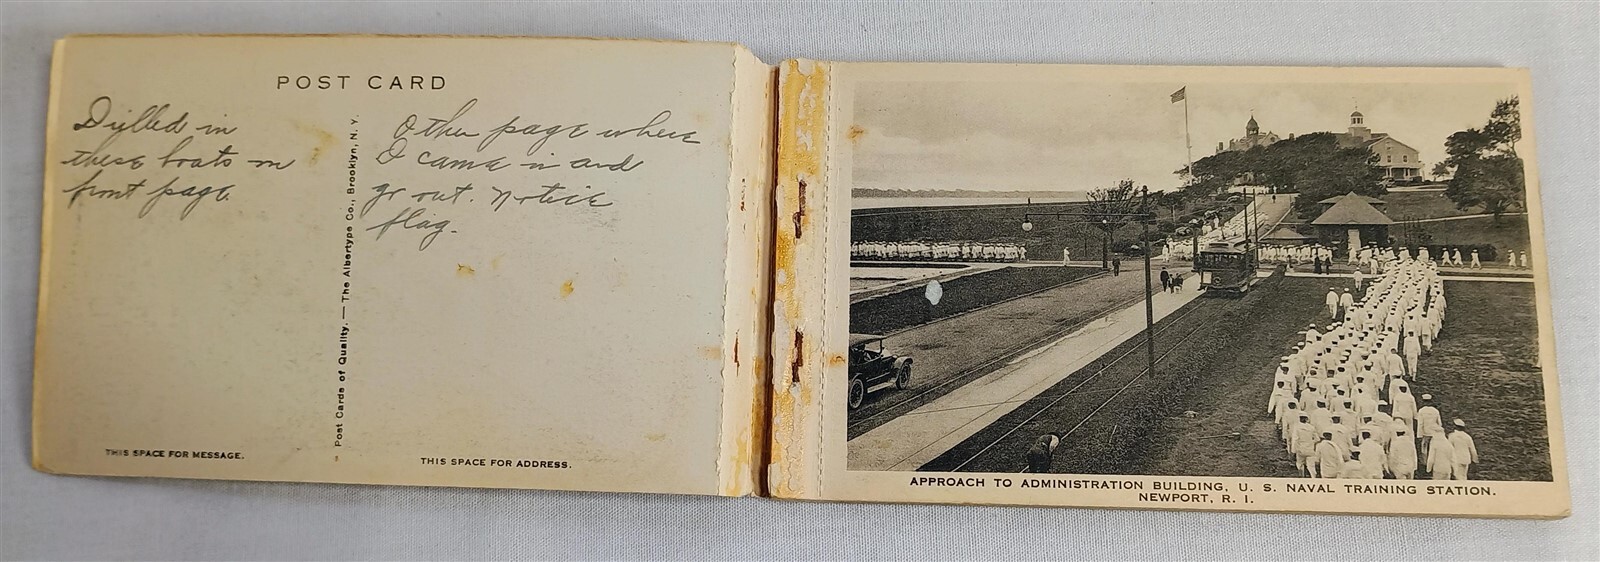 POST CARD
Drilled in
these boats on
front page.
Post Cards of Quality. — The Albertype Co., Brooklyn, N. Y.
Other page where
I came in and
go out. Notice
flag.
THIS SPACE FOR MESSAGE.
THIS SPACE FOR ADDRESS.
APPROACH TO ADMINISTRATION BUILDING, U. S. NAVAL TRAINING STATION.
NEWPORT, R. I.